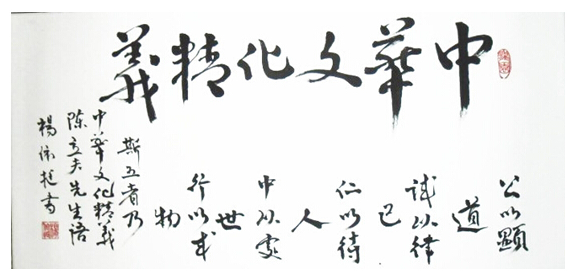 中華文化精義
公以顯
道
誠以律
己
仁以待
人
中以處
世
行以成
物
斯五者乃
中華文化精義
陳立夫先生語
楊書